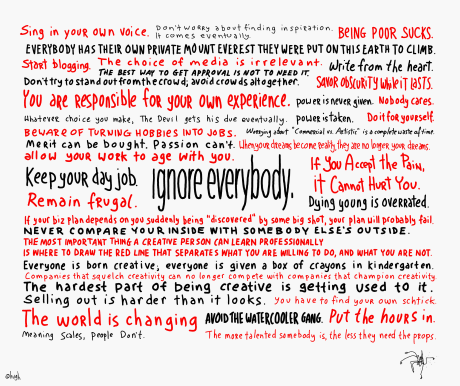 Sing in your own voice.
Don't worry about finding inspiration.
It comes eventually.
BEING POOR SUCKS.
EVERYBODY HAS THEIR OWN PRIVATE MOUNT EVEREST THEY WERE PUT ON THIS EARTH TO CLIMB.
Start blogging.
The choice of media is irrelevant.
Write from the heart.
THE BEST WAY TO GET APPROVAL IS NOT TO NEED IT.
Don't try to stand out from the crowd; avoid crowds altogether.
SAVOR OBSCURITY while it LASTS.
You are responsible for your own experience.
power is never given.
Nobody cares.
Whatever choice you make, The Devil gets his due eventually.
power is taken.
Do it for yourself.
BEWARE OF TURNING HOBBIES INTO JOBS.
Worrying about "Commercial vs. Artistic" is a complete waste of time.
Merit can be bought. Passion can't.
When your dreams become reality, they are no longer your dreams.
allow your work to age with you.
If You Accept the Pain,
it Cannot Hurt You.
Keep your day job.
ignore everybody.
Remain frugal.
Dying young is overrated.
If your biz plan depends on you suddenly being "discovered" by some big shot, your plan will probably fail.
NEVER COMPARE YOUR INSIDE WITH SOMEBODY ELSE'S OUTSIDE.
THE MOST IMPORTANT THING A CREATIVE PERSON CAN LEARN PROFESSIONALLY
IS WHERE TO DRAW THE RED LINE THAT SEPARATES WHAT YOU ARE WILLING TO DO, AND WHAT YOU ARE NOT.
Everyone is born creative, everyone is given a box of crayons in kindergarten.
Companies that squelch creativity can no longer compete with companies that champion creativity.
The hardest part of being creative is getting used to it.
Selling out is harder than it looks.
You have to find your own schtick.
The world is changing
AVOID THE WATERCOOLER GANG.
Put the hours in.
Meaning Scales, People Don't.
The more talented somebody is, the less they need the props.
@hugh